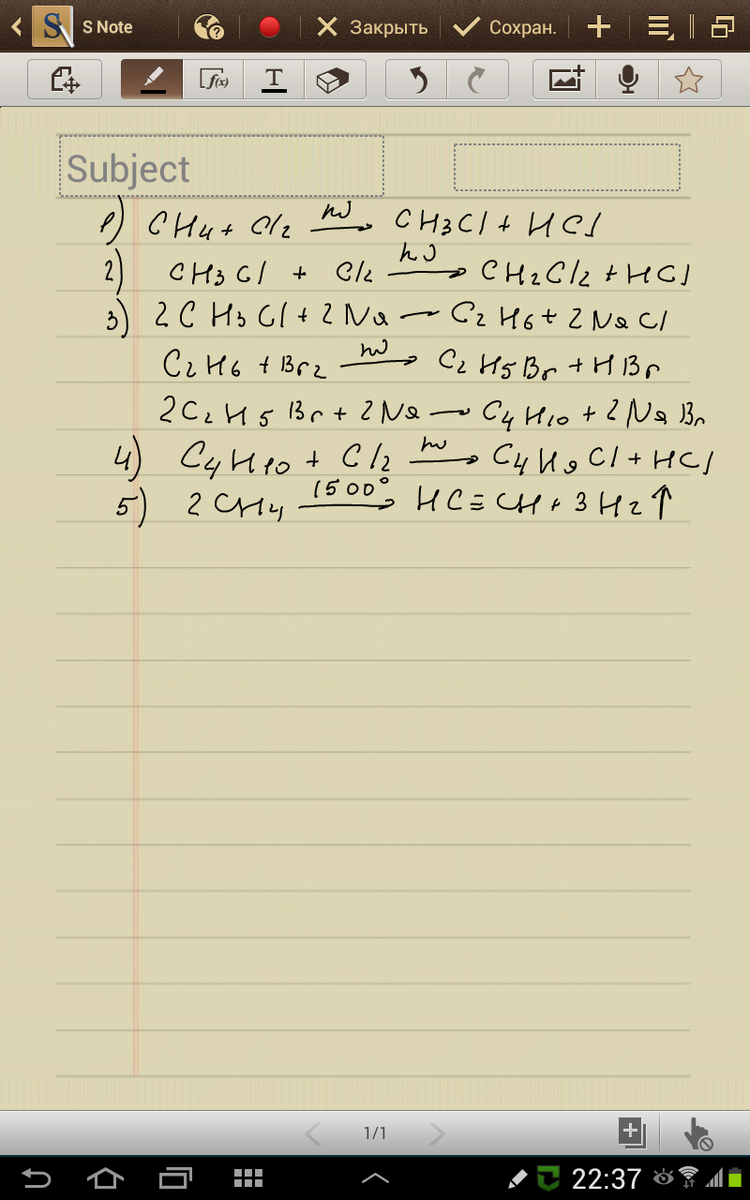 S Note
Закрыть
Сохран.
f(x)
T
Subject
1) CH4 + Cl2 hν→ CH3Cl + HCl
2) CH3Cl + Cl2 hν→ CH2Cl2 + HCl
3) 2CH3Cl + 2Na — C2H6 + 2NaCl
C2H6 + Br2 hν→ C2H5Br + HBr
2C2H5Br + 2Na — C4H10 + 2NaBr
4) C4H10 + Cl2 hν→ C4H9Cl + HCl
5) 2CH4 1500°→ HC≡CH + 3H2↑
1/1
22:37